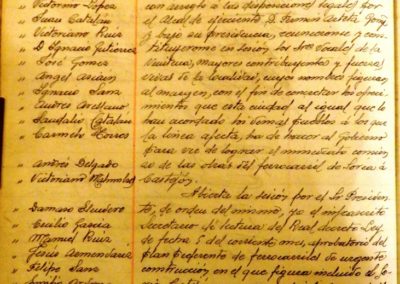 " Victorino López
" Juan Catalán
" Victoriano Ruiz
" D Ignacio Gutiérrez
" José Gómez
" Angel
" Ignacio Sanz
" Andres Arellano
" Catalán
" Carmelo
" Andrés Delgado
" Victoriano
" Damaso Escudero
" Cecilio García
" Manuel Ruiz
" Jesus Armendariz
" Felipe Sanz
con arreglo a las disposiciones legales por
el Alcalde ejerciente D. Román
y bajo su presidencia, reuniéronse y cons-
tituyeronse en sesión, los Srs Vocales de la
misma, mayores contribuyentes y fuerzas
vivas de la localidad, cuyos nombres figuran
al margen, con el fin de concretar los ofreci-
mientos que esta ciudad al igual que lo
han acordado los demás pueblos a los que
la línea afecta, ha de hacer al Gobierno
para ver de lograr el inmediato comien-
zo de las obras del ferrocarril de Soria a
Castejón.
Abierta la sesión por el Sr Presiden-
te, de orden del mismo, yo el infrascrito
Secretario dí lectura del Real decreto Ley
de fecha 5 del corriente mes, aprobatorio del
Plan Preferente de ferrocarriles de urgente
construcción, en el que figura incluido el de So-